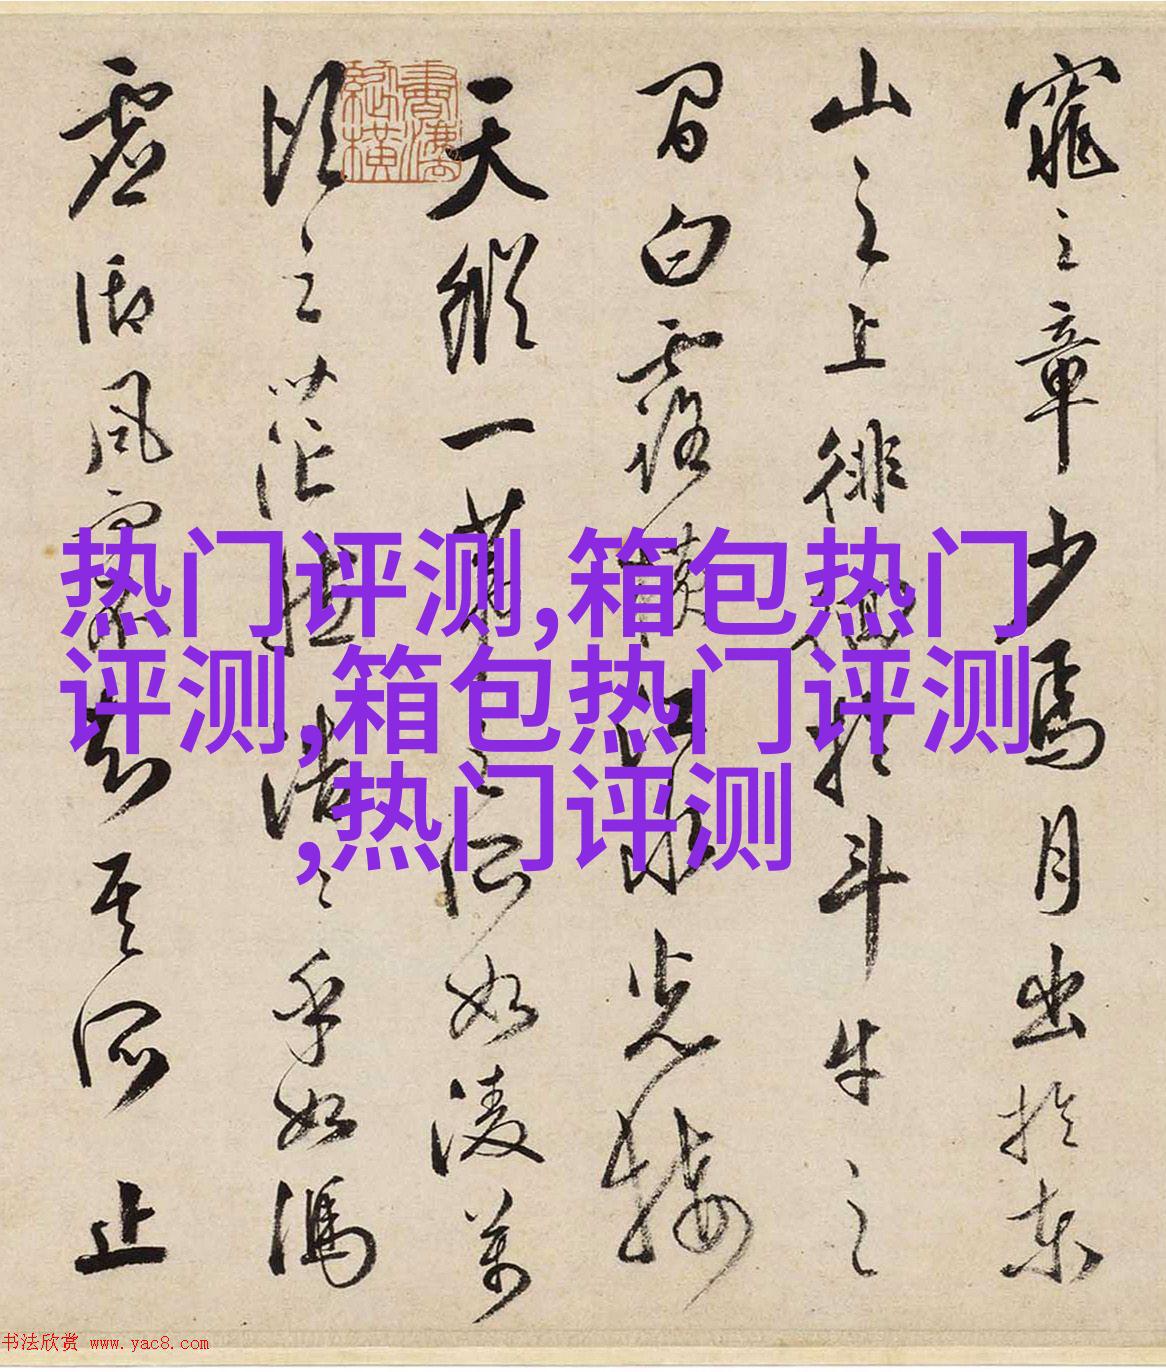 窕之章少焉月出於東
山之上徘徊於斗牛之
間白露横江水光接
天縱一葦之所如凌萬
頃之茫然浩〻乎如馮
虚御風而不知其所止
热门评测,箱包热门
评测,箱包热门评测
,热门评测
书法欣赏 www.yac8.com